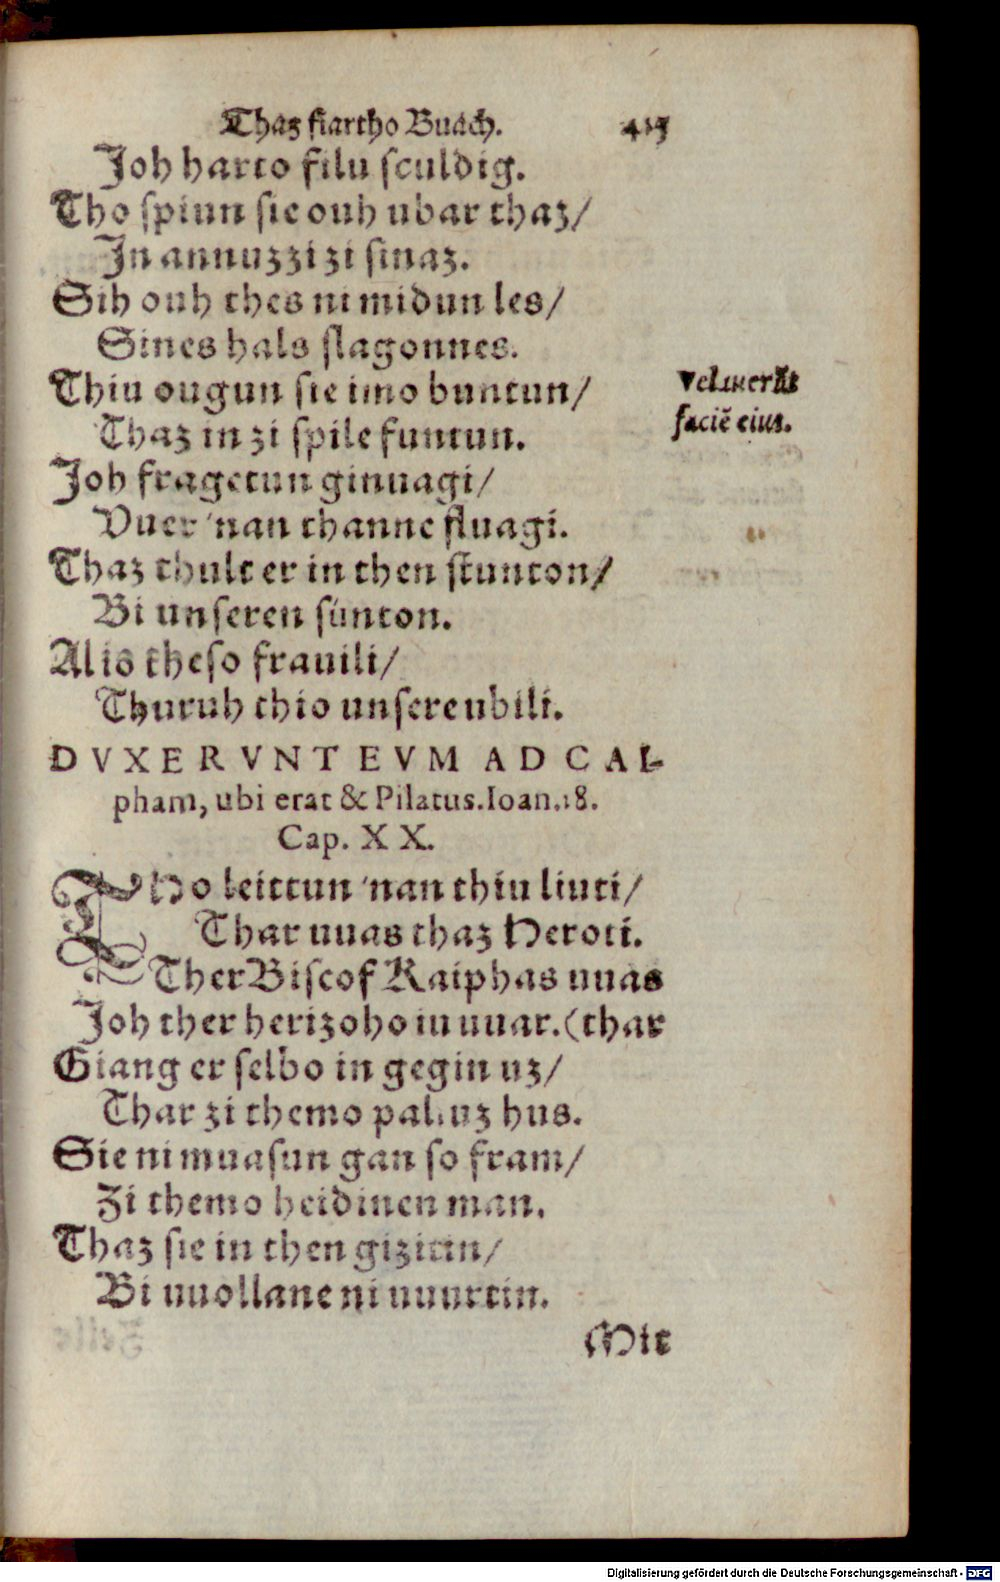 Thaz fiartho Buach. 415
Joh harto filu sculdig.
Tho spiun sie ouh ubar thaz/
In annuzzi zi sinaz.
Sih ouh thes ni midun les/
Sines hals slagonnes.
Thiu ougun sie imo buntun/
Thaz in zi spile funtun.
Velauerūt
faciē eius.
Joh fragetun ginuagi/
Vuer 'nan thanne sluagi.
Thaz thulter in then stunton/
Bi unseren súnton.
Al io theso frauili/
Thuruh thio unsere ubili.
DVXERVNT EVM AD CAI-
pham, ubi erat & Pilatus. Ioan. 18.
Cap. XX.
THo leittun 'nan thiu liuti/
Thar uuas thaz Heroti.
Ther Biscof Kaiphas uuas
Joh ther herizoho in uuar. (thar
Giang er selbo in gegin uz/
Thar zi themo palinz hus.
Sie ni muasun gan so fram/
Zi themo heidinen man.
Thaz sie in then gizitin/
Bi uuollane ni uuurtin.
Mit
Digitalisierung gefördert durch die Deutsche Forschungsgemeinschaft - DFG